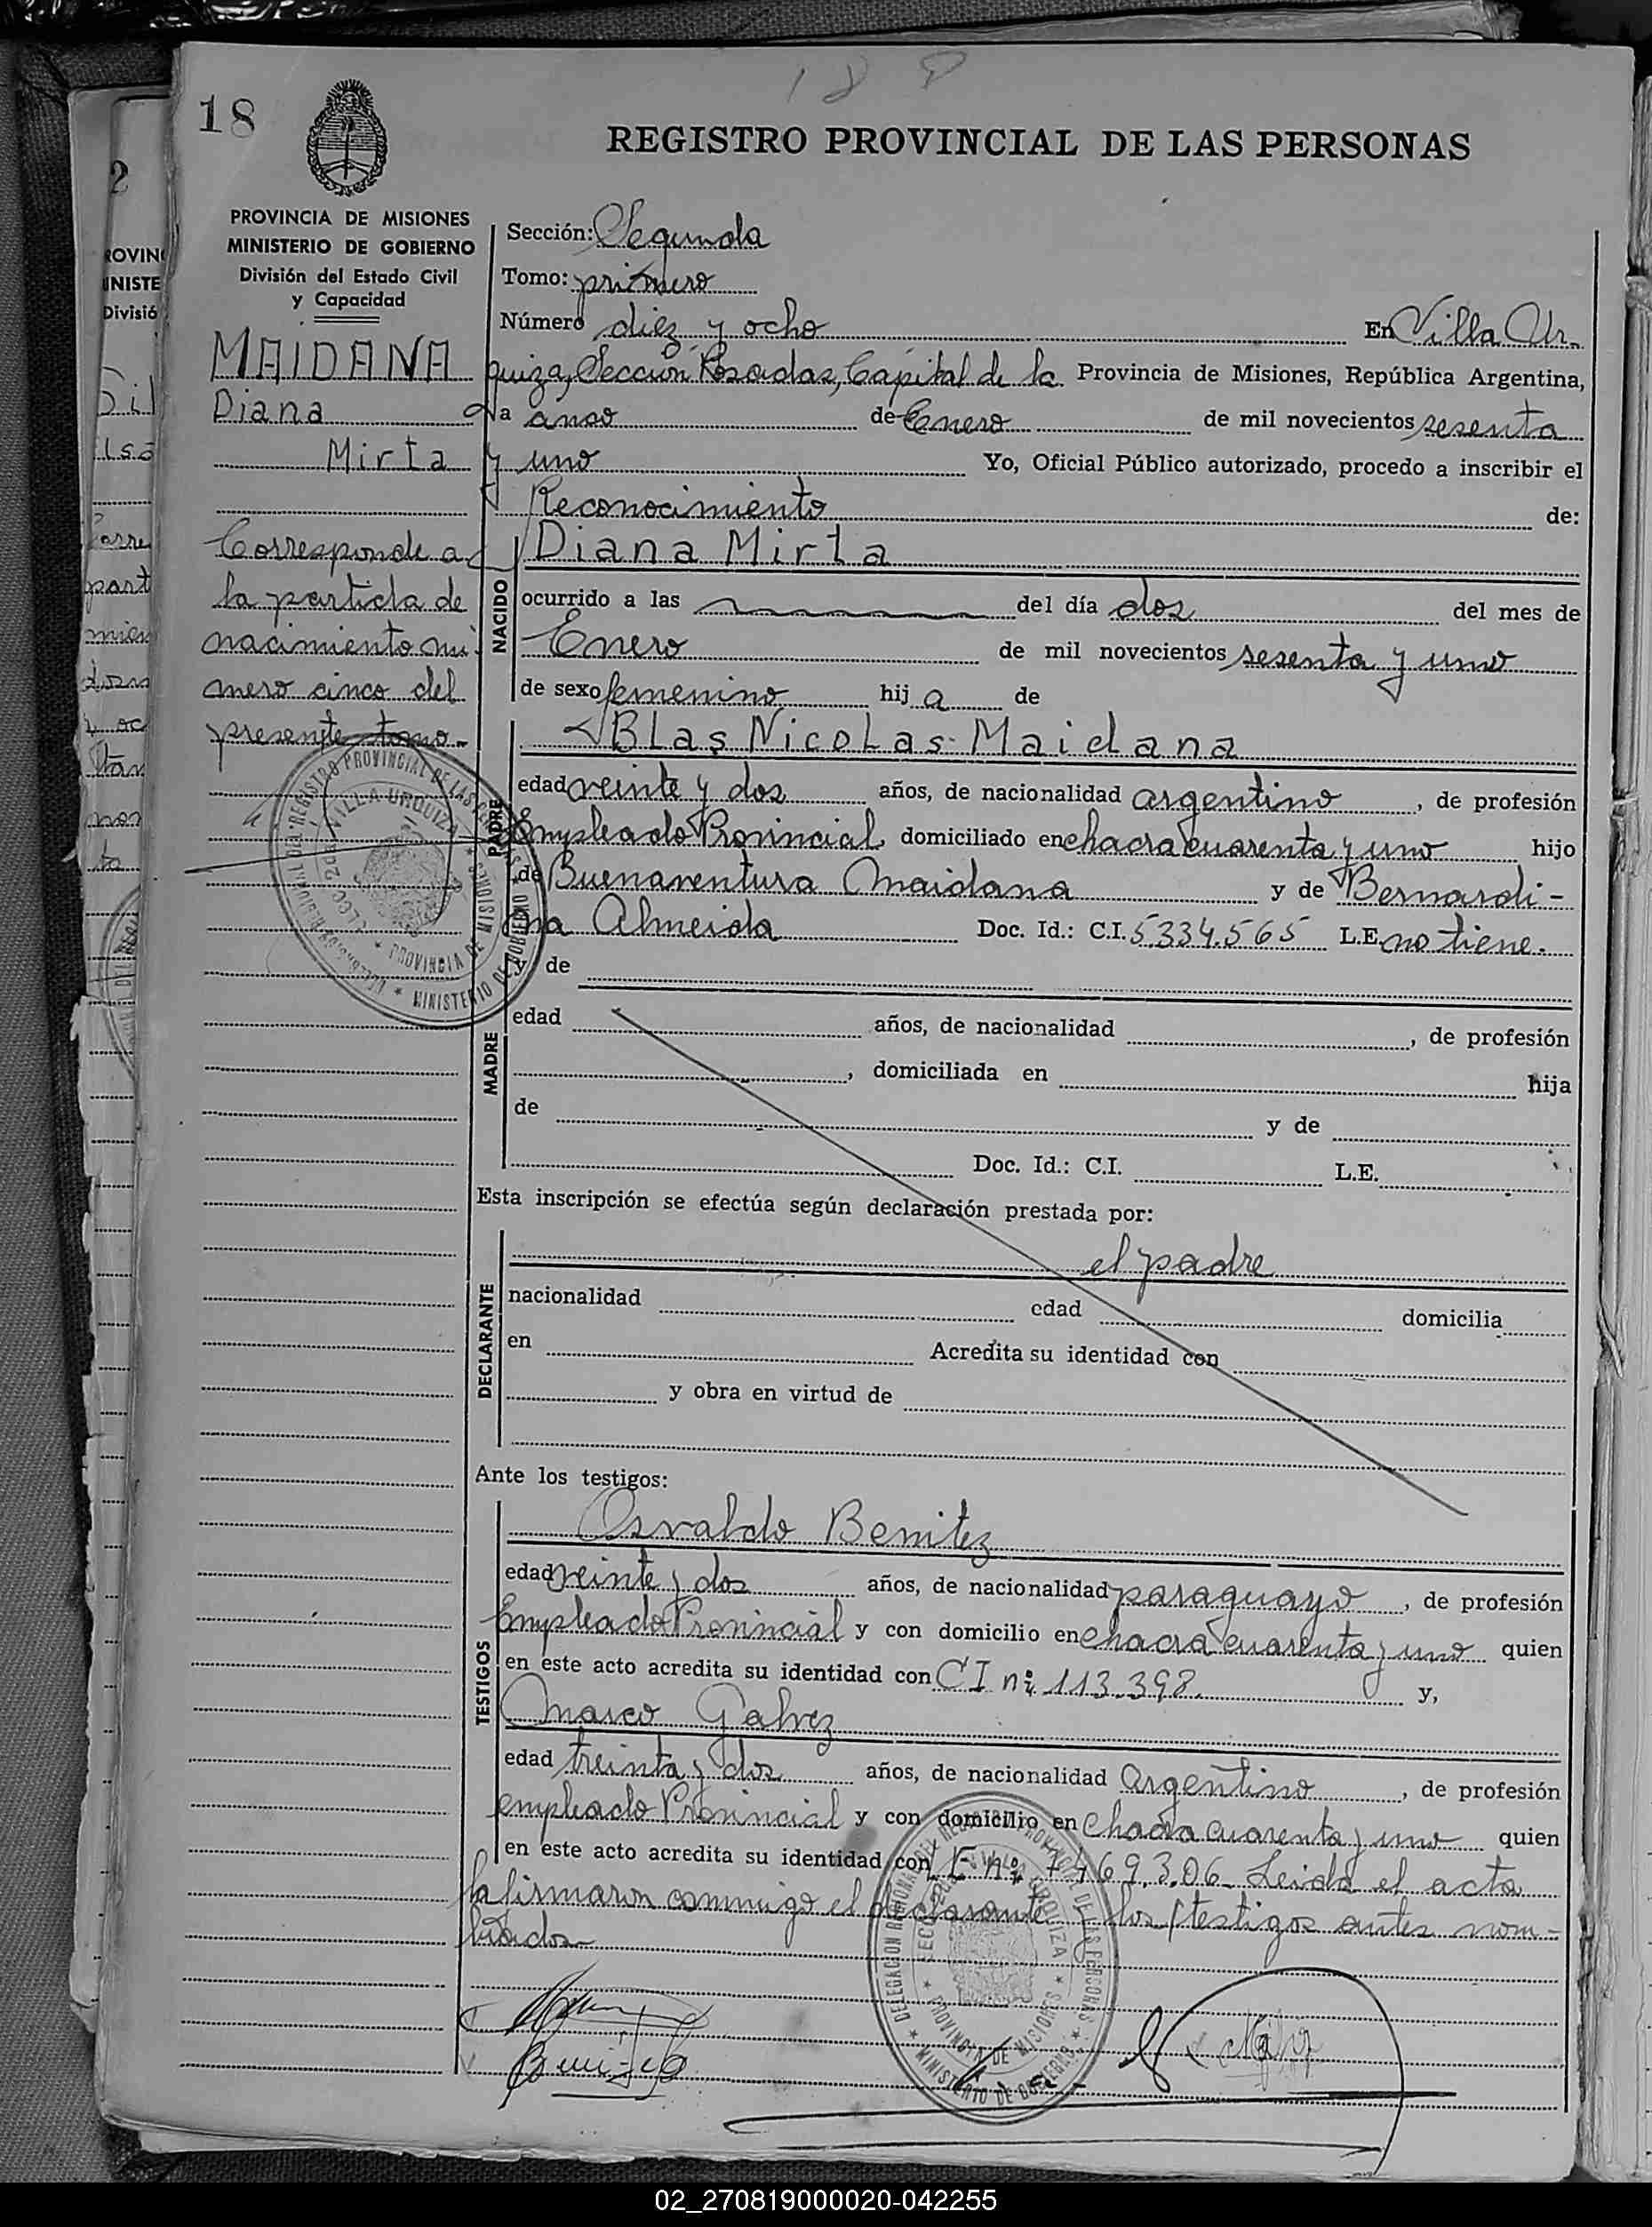 18
18
REGISTRO PROVINCIAL DE LAS PERSONAS
PROVINCIA DE MISIONES
MINISTERIO DE GOBIERNO
División del Estado Civil
y Capacidad
MAIDANA
Diana
Mirta
Corresponde a
la partida de
nacimiento nú-
mero cinco del
presente tomo.-
Sección: Segunda
Tomo: primero
Número diez y ocho En Villa Ur-
quiza, Sección Posadas, Capital de la Provincia de Misiones, República Argentina,
a de Enero de mil novecientos sesenta
y uno Yo, Oficial Público autorizado, procedo a inscribir el
Reconocimiento de:
Diana Mirta
NACIDO
ocurrido a las del día dos del mes de
Enero de mil novecientos sesenta y uno
de sexo femenino hij a de
PADRE
Blas Nicolas Maidana
edad veinte y dos años, de nacionalidad argentino, de profesión
Empleado Provincial, domiciliado en chacra cuarenta y uno hijo
de Buenaventura Maidana y de Bernardi-
na Almeida Doc. Id.: C.I. 5.334.565 L.E. no tiene.
y de
MADRE
edad años, de nacionalidad , de profesión
, domiciliada en hija
de y de
Doc. Id.: C.I. L.E.
Esta inscripción se efectúa según declaración prestada por:
DECLARANTE
el padre
nacionalidad edad domicilia
en Acredita su identidad con
y obra en virtud de
Ante los testigos:
TESTIGOS
Osvaldo Benitez
edad veinte y dos años, de nacionalidad paraguayo, de profesión
Empleado Provincial y con domicilio en chacra cuarenta y uno quien
en este acto acredita su identidad con CI nº 113.398 y,
Marco Galvez
edad treinta y dos años, de nacionalidad Argentino, de profesión
empleado Provincial y con domicilio en chacra cuarenta y uno quien
en este acto acredita su identidad con L E nº 7.469.306. Leida el acta
la firmaron conmigo el declarante y los testigos antes nom-
brados
02_270819000020-042255